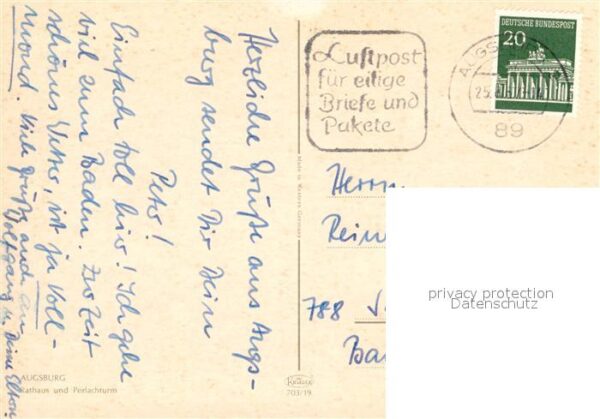 Herzliche Grüße aus Augs-
burg sendet Dir Dein
Peter!
Einfach toll hier! Ich gehe
viel zum Baden. Zur Zeit
schönes Wetter, ist ja Voll-
mond. Viele Grüße auch an
Wolfgang u. Deine Eltern
AUGSBURG
Rathaus und Perlachturm
Made in Western Germany
KRÜGER
703/19
Luftpost
für eilige
Briefe und
Pakete
AUGSB
25.
89
DEUTSCHE BUNDESPOST
20
Herrn
Rein
788
Ba
privacy protection
Datenschutz